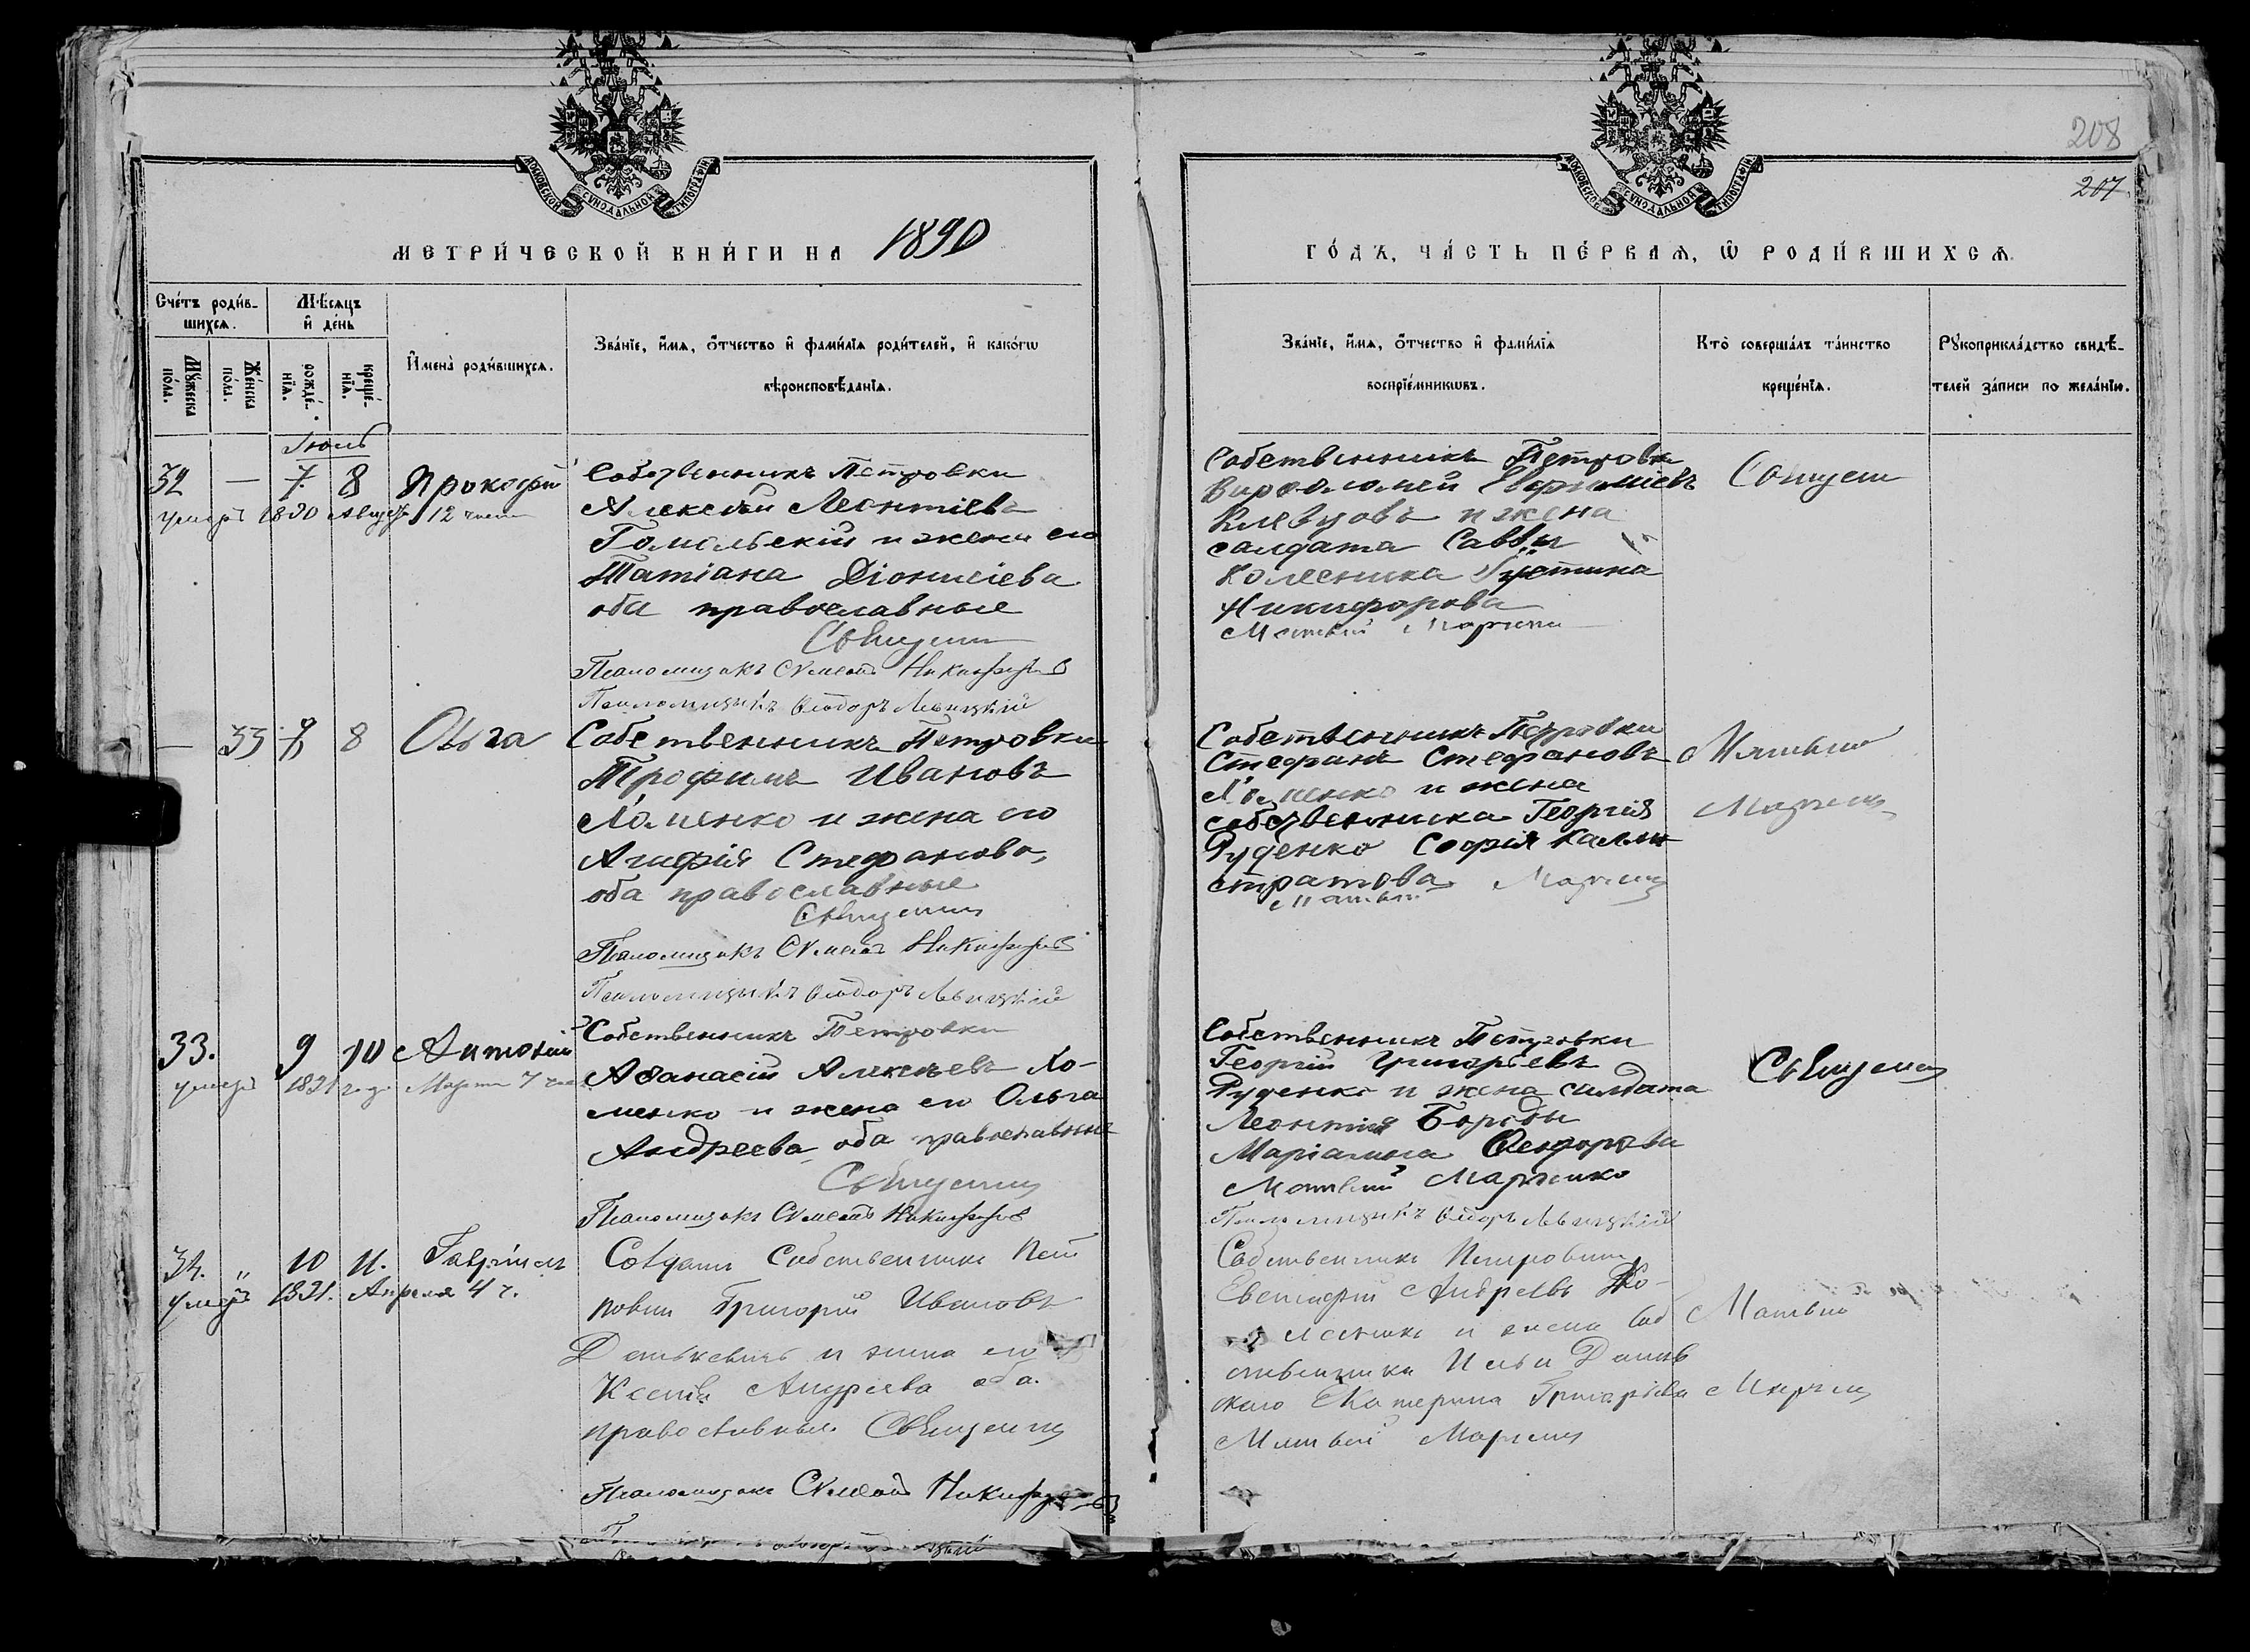 208
207
МОСКОВСКОЙ СѴНОДАЛЬНОЙ ТИПОГРАФІИ
МОСКОВСКОЙ СѴНОДАЛЬНОЙ ТИПОГРАФІИ
МЕТРИ́ЧЕСКОЙ КНИ́ГИ НА 1890
ГО́ДЪ, ЧА́СТЬ ПЕ́РВАѦ, Ѡ҆ РОДИ́ВШИХСѦ.
Сче́тъ роди́в-
шихсѧ.
Мѣ́сѧцъ
и҆ де́нь
Мꙋ́жеска
по́ла.
Же́нска
по́ла.
рожде́-
нїѧ.
креще́-
нїѧ.
И҆мена̀ роди́вшихсѧ.
Зва́нїе, и҆́мѧ, ѻ҆́тчество и҆ фами́лїѧ роди́телей, и҆ како́гѡ
вѣроисповѣ́данїѧ.
Зва́нїе, и҆́мѧ, ѻ҆́тчество и҆ фами́лїѧ
воспрїе́мникѡвъ.
Кто̀ соверша́лъ та́инство
креще́нїѧ.
Рꙋкоприкла́дство свидѣ́-
телей за́писи по жела́нїю.
Іюль
32 — 7 8 Прокофій
умеръ 1890 Августъ 12 числа
Собственникъ Петровки
Алексѣй Леонтіевъ
Гомольскій и жена его
Татіана Діонисіева
оба православные
Священникъ
Псаломщикъ Сѵмеонъ Никифоровъ
Псаломщикъ Ѳеодоръ Левицкій
Собственникъ Петровки
Варфоломей Евфиміевъ
и жена
солдата Саввы
Колесника Іустина
Никифорова
Матвѣй Марченко
Священ
— 33 8 8 Ольга
Собственникъ Петровки
Трофимъ Ивановъ
Хоменко и жена его
Агафія Стефанова,
оба православные
Священникъ
Псаломщикъ Сѵмеонъ Никифоровъ
Псаломщикъ Ѳеодоръ Левицкій
Собственникъ Петровки
Стефанъ Стефановъ
Хоменко и жена
собственника Георгія
Руденко Софія Калли-
стратова
Матвѣй Марченко
Матвѣй
Марченко
33. 9 10 Антоній
умеръ 1891 года Марта 7 числа
Собственникъ Петровки
Аѳанасій Алексѣевъ Хо-
менко и жена его Ольга
Андреева, оба православные
Священникъ
Псаломщикъ Сѵмеонъ Никифоровъ
Собственникъ Петровки
Георгій Григорьевъ
Руденко и жена солдата
Леонтія Бороды
Маріамна Ѳеодорова
Матвѣй Марченко
Псаломщикъ Ѳеодоръ Левицкій
Священникъ
34. „ 10 11. Гавріилъ
умеръ 1891. Апреля 4 ч.
Солдатъ Собственникъ Пет
ровки Григорій Ивановъ
и жена его
Ксенія Андреева оба
православные Священникъ
Псаломщикъ Сѵмеонъ Никифоровъ
Собственникъ Петровки
Евстафій Андреевъ Хо-
менко и жена соб
ственника Ильи
Екатерина Григорьева
Матвѣй Марченко
Матвѣй
Марченко